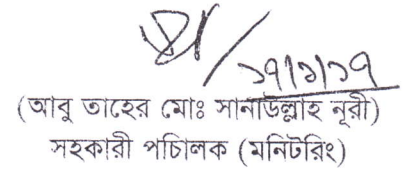 ১৭|১|১৭
(আবু তাহের মোঃ সানাউল্লাহ নূরী)
সহকারী পচিালক (মনিটরিং)